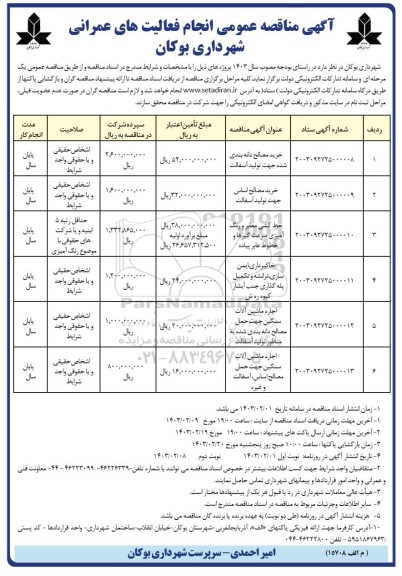 آگهی مناقصه عمومی انجام فعالیت های عمرانی
شهرداری بوکان
شهرداری بوکان در نظر دارد در راستای بودجه مصوب سال ۱۴۰۳ پروژه های ذیل را با مشخصات و شرایط مندرج در اسناد مناقصه و از طریق مناقصه عمومی یک
مرحله ای و سامانه تدارکات الکترونیکی دولت برگزار نماید. کلیه مراحل برگزاری مناقصه از دریافت اسناد مناقصه تا ارائه پیشنهاد مناقصه گران و بازگشایی پاکتها از
طریق درگاه سامانه تدارکات الکترونیکی دولت (ستاد) به آدرس www.setadiran.ir انجام خواهد شد و لازم است مناقصه گران در صورت عدم عضویت قبلی،
مراحل ثبت نام در سایت مذکور و دریافت گواهی امضای الکترونیکی را جهت شرکت در مناقصه محقق سازند.
ردیف شماره آگهی ستاد عنوان آگهی مناقصه مبلغ تأمین اعتبار به ریال سپرده شرکت در مناقصه به ریال صلاحیت مدت انجام کار
۱ ۲۰۰۳۰۹۲۷۲۵۰۰۰۰۰۸ خرید مصالح دانه بندی شده جهت تولید آسفالت ۵۲,۰۰۰,۰۰۰,۰۰۰ ریال ۲,۶۰۰,۰۰۰,۰۰۰ ریال اشخاص حقیقی و یا حقوقی واجد شرایط پایان سال
۲ ۲۰۰۳۰۹۲۷۲۵۰۰۰۰۰۹ خرید مصالح اساس جهت تولید آسفالت ۳۲,۰۰۰,۰۰۰,۰۰۰ ریال ۱,۶۰۰,۰۰۰,۰۰۰ ریال اشخاص حقیقی و یا حقوقی واجد شرایط پایان سال
۳ ۲۰۰۳۰۹۲۷۲۵۰۰۰۰۱۰ خط کشی معابر و رنگ آمیزی سرعت گیرها و خطوط عابر پیاده ۲۸,۰۰۰,۰۰۰,۰۰۰ ریال مبلغ برآورد اولیه ۲۶,۶۵۷,۳۱۲,۵۰۰ ریال ۱,۳۳۲,۸۶۵,۰۰۰ ریال حداقل رتبه ۵ ابنیه و یا شرکت های حقوقی با موضوع رنگ آمیزی پایان سال
۴ ۲۰۰۳۰۹۲۷۲۵۰۰۰۰۱۱ ۲۴,۰۰۰,۰۰۰,۰۰۰ ریال ۱,۲۰۰,۰۰۰,۰۰۰ ریال اشخاص حقیقی و یا حقوقی واجد شرایط پایان سال
۵ ۲۰۰۳۰۹۲۷۲۵۰۰۰۰۱۲ اجاره ماشین آلات سنگین جهت حمل مصالح دانه بندی شده به منظور تولید آسفالت ۲۰,۰۰۰,۰۰۰,۰۰۰ ریال ۱,۰۰۰,۰۰۰,۰۰۰ ریال اشخاص حقیقی و یا حقوقی واجد شرایط پایان سال
۶ ۲۰۰۳۰۹۲۷۲۵۰۰۰۰۱۳ اجاره ماشین آلات سنگین جهت حمل مصالح اساس، آسفالت و غیره ۱۶,۰۰۰,۰۰۰,۰۰۰ ریال ۸۰۰,۰۰۰,۰۰۰ ریال اشخاص حقیقی و یا حقوقی واجد شرایط پایان سال
ParsNamadData
۰۲۱-۸۸۳۴۹۶۷۰
۱- زمان انتشار اسناد مناقصه در سامانه تاریخ ۱۴۰۳/۰۲/۰۱ می باشد.
۲- آخرین مهلت زمانی دریافت اسناد مناقصه از سایت : ساعت ۱۹:۰۰ مورخ ۱۴۰۳/۰۲/۰۹
۲- آخرین مهلت زمانی ارسال پاکت های پیشنهاد: ساعت ۱۹:۰۰ مورخ ۱۴۰۳/۰۲/۱۹
۳- زمان بازگشایی پاکتها : ساعت ۱۰:۰۰ صبح روز پنجشنبه مورخ ۱۴۰۳/۰۲/۲۰
۴- تاریخ انتشار آگهی در روزنامه: نوبت اول ۱۴۰۳/۰۲/۰۱ نوبت دوم ۱۴۰۳/۰۲/۰۸
۲- متقاضیان واجد شرایط جهت کسب اطلاعات بیشتر در خصوص اسناد مناقصه می توانند با شماره تلفن ۴۶۲۲۶۳۳۹-۴۶۲۲۳۰۹۹-۰۴۴ معاونت فنی و
عمرانی و واحد امور قراردادها و پیمانهای شهرداری تماس حاصل نمایند.
۳- هیأت عالی معاملات شهرداری در رد یا قبول هر یک از پیشنهادها مختار است.
۴- سایر اطلاعات وجزئیات مربوط به مناقصه در اسناد مناقصه مندرج است.
۵- هزینه انتشار آگهی در روزنامه (طی دو نوبت) به عهده برنده یا برنده گان مناقصه می باشد.
۱۰-آدرس کارفرما جهت ارائه فیزیکی پاکتهای «الف»، آذربایجانغربی-شهرستان بوکان-خیابان انقلاب-ساختمان شهرداری- واحد قراردادها - کد پستی
۵۹۵۱۸۶۷۹۶۳ - تلفن ۴۶۲۲۲۸۰۰-۰۴۴
امیر احمدی - سرپرست شهرداری بوکان
( م الف ۱۵۷۰۸ )